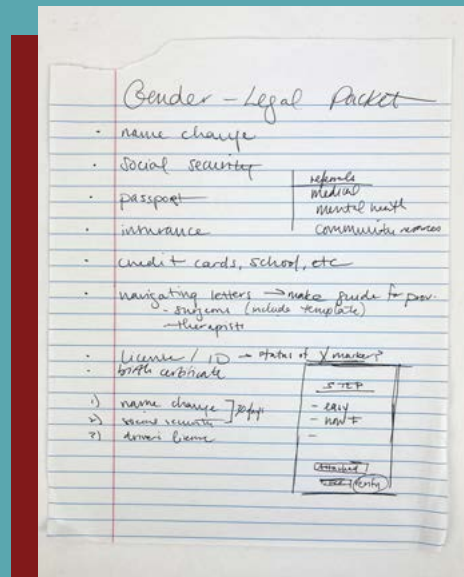 Gender - Legal Packet
· name change
· social security
· passport
· insurance
referrals
medical
mental health
community resources
· credit cards, school, etc
· navigating letters → make guide for prov.
- surgeons (include template)
- therapists
· License / ID → status of X marker?
· birth certificate
1) name change
2) social security
3) drivers license
STEP
- easy
- how to
-
Attached